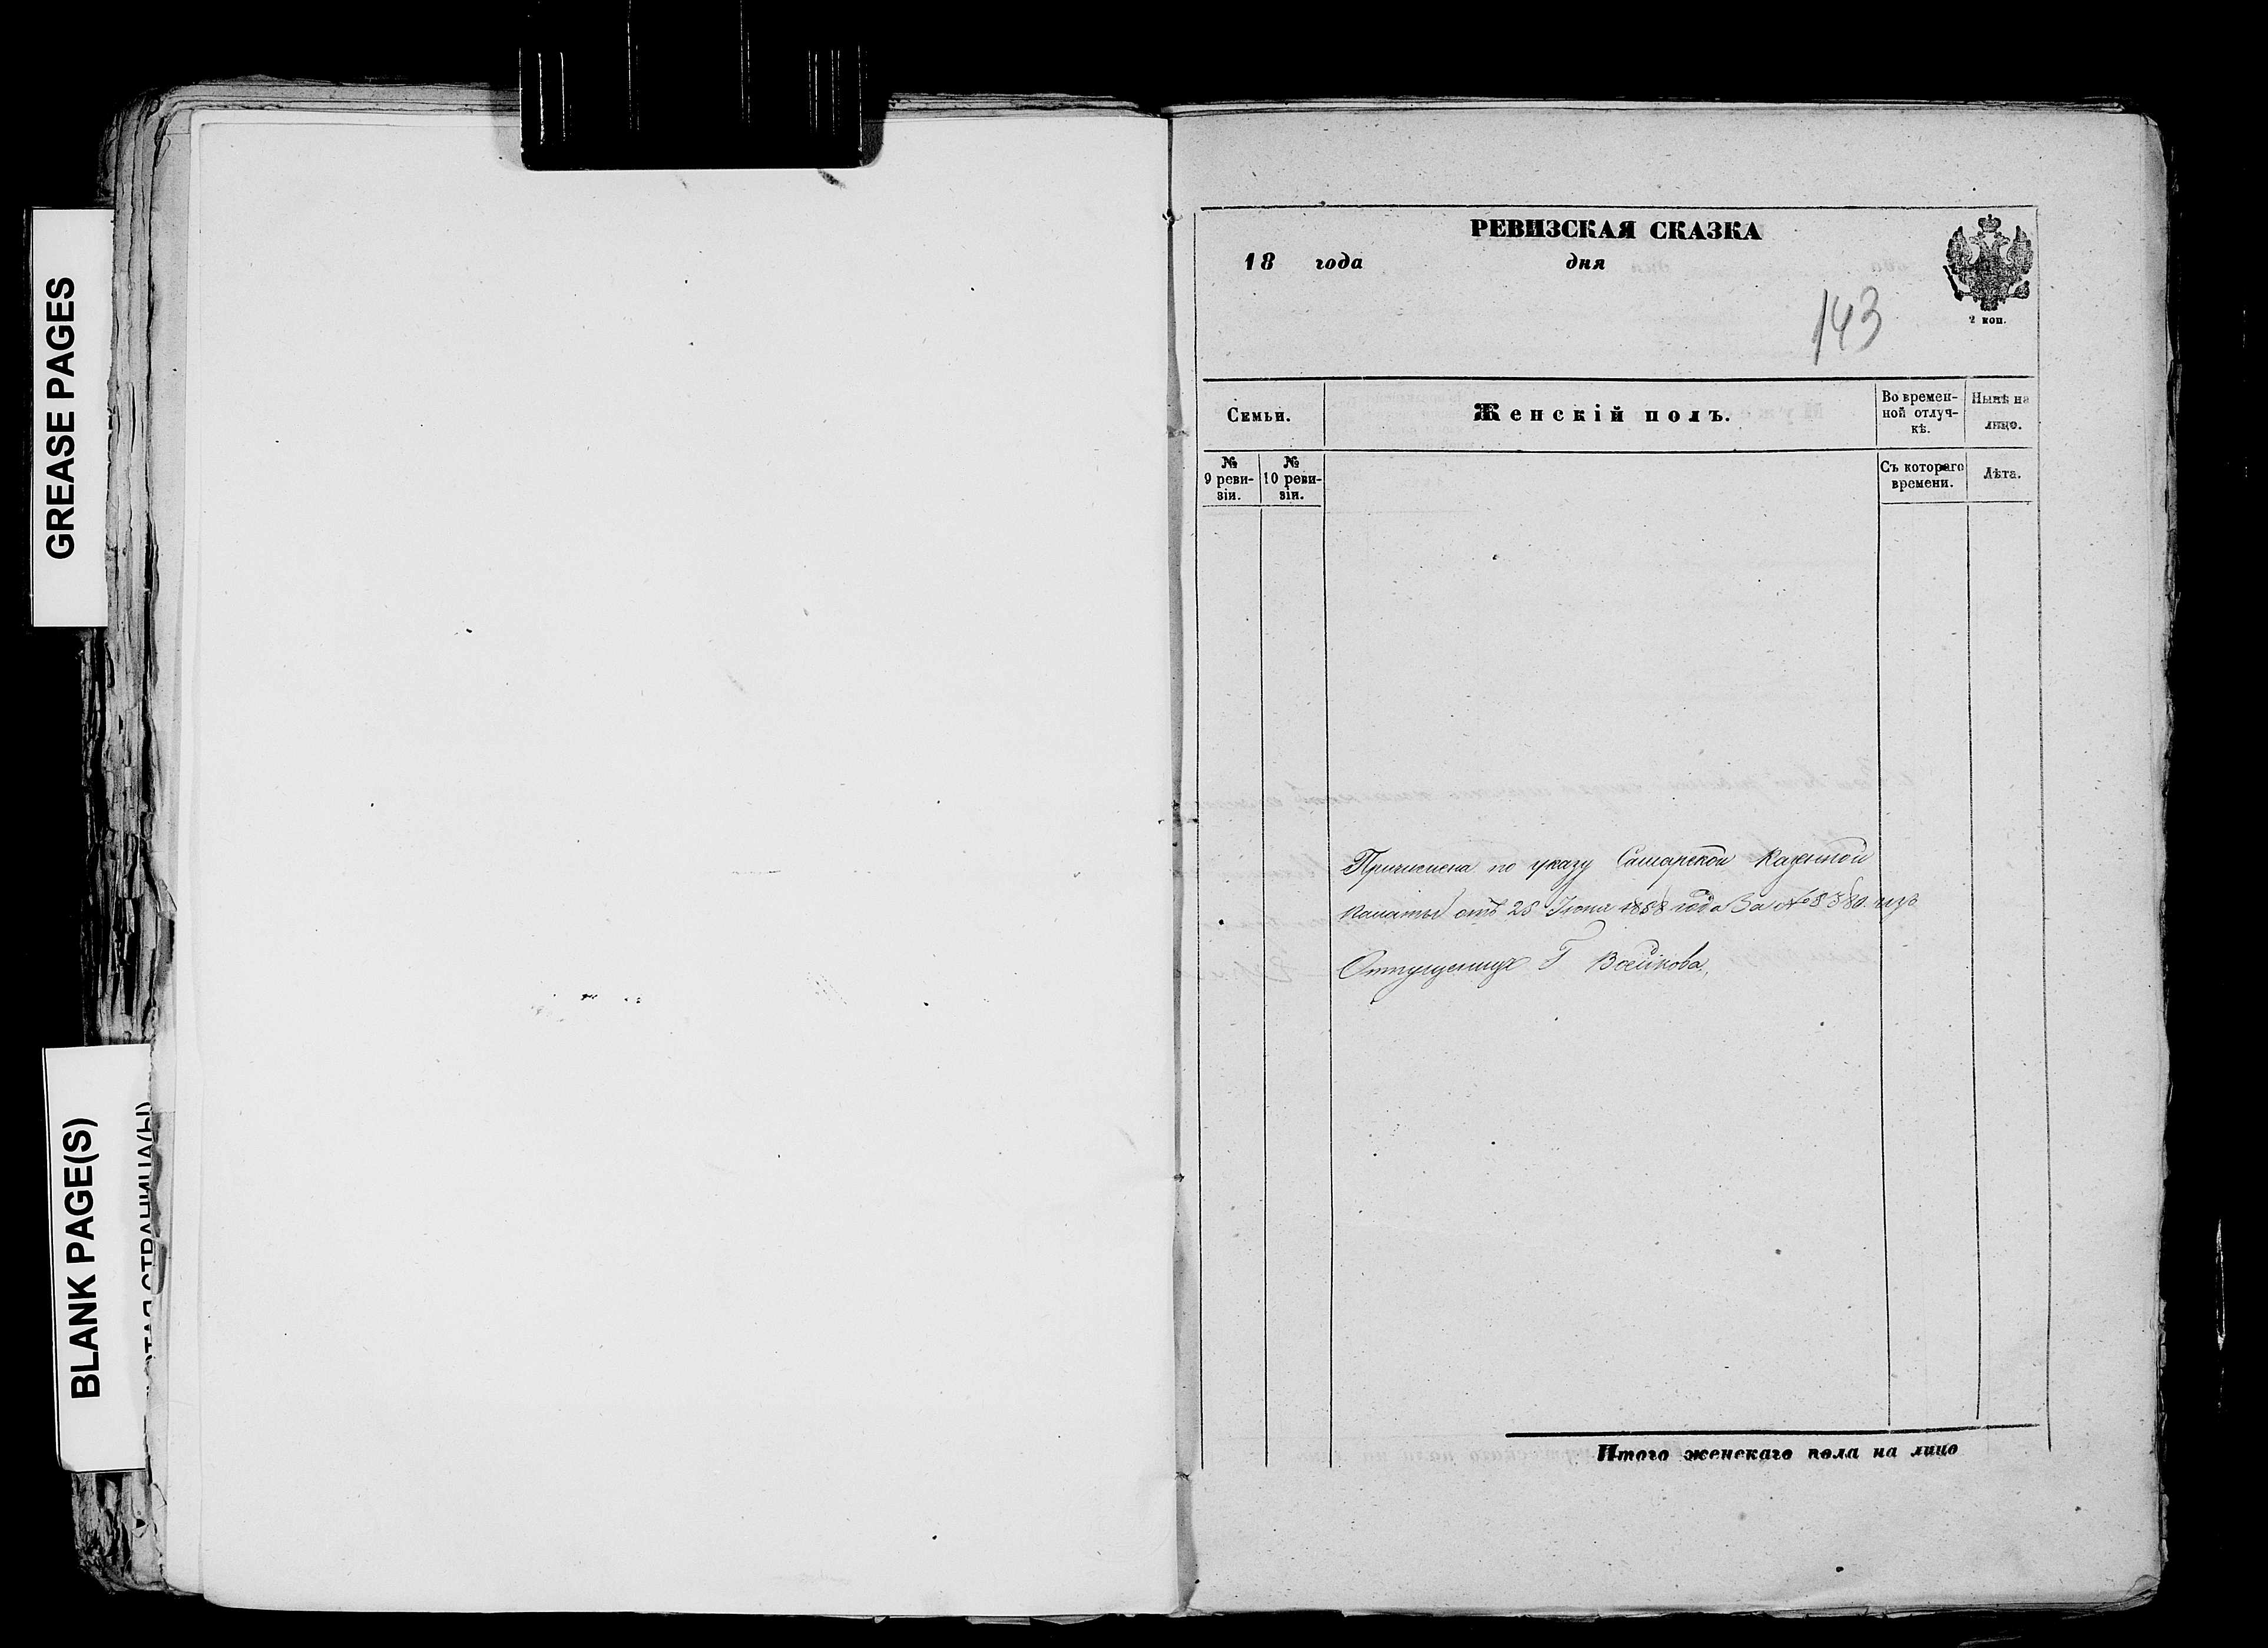 GREASE PAGES
BLANK PAGE(S)
РЕВИЗСКАЯ СКАЗКА
18 года дня
2 коп.
143
Семьи.
Женскій полъ.
Во времен-
ной отлуч-
кѣ.
Нынѣ на
лицо.
№
9 реви-
зіи.
№
10 реви-
зіи.
Съ котораго
времени.
Лѣта.
Причислена по указу Самарской Казенной
палаты отъ 25 Іюня 1858 года За № 8380. изъ
Отпущенных Г Воейкова,
Итого женскаго пола на лицо